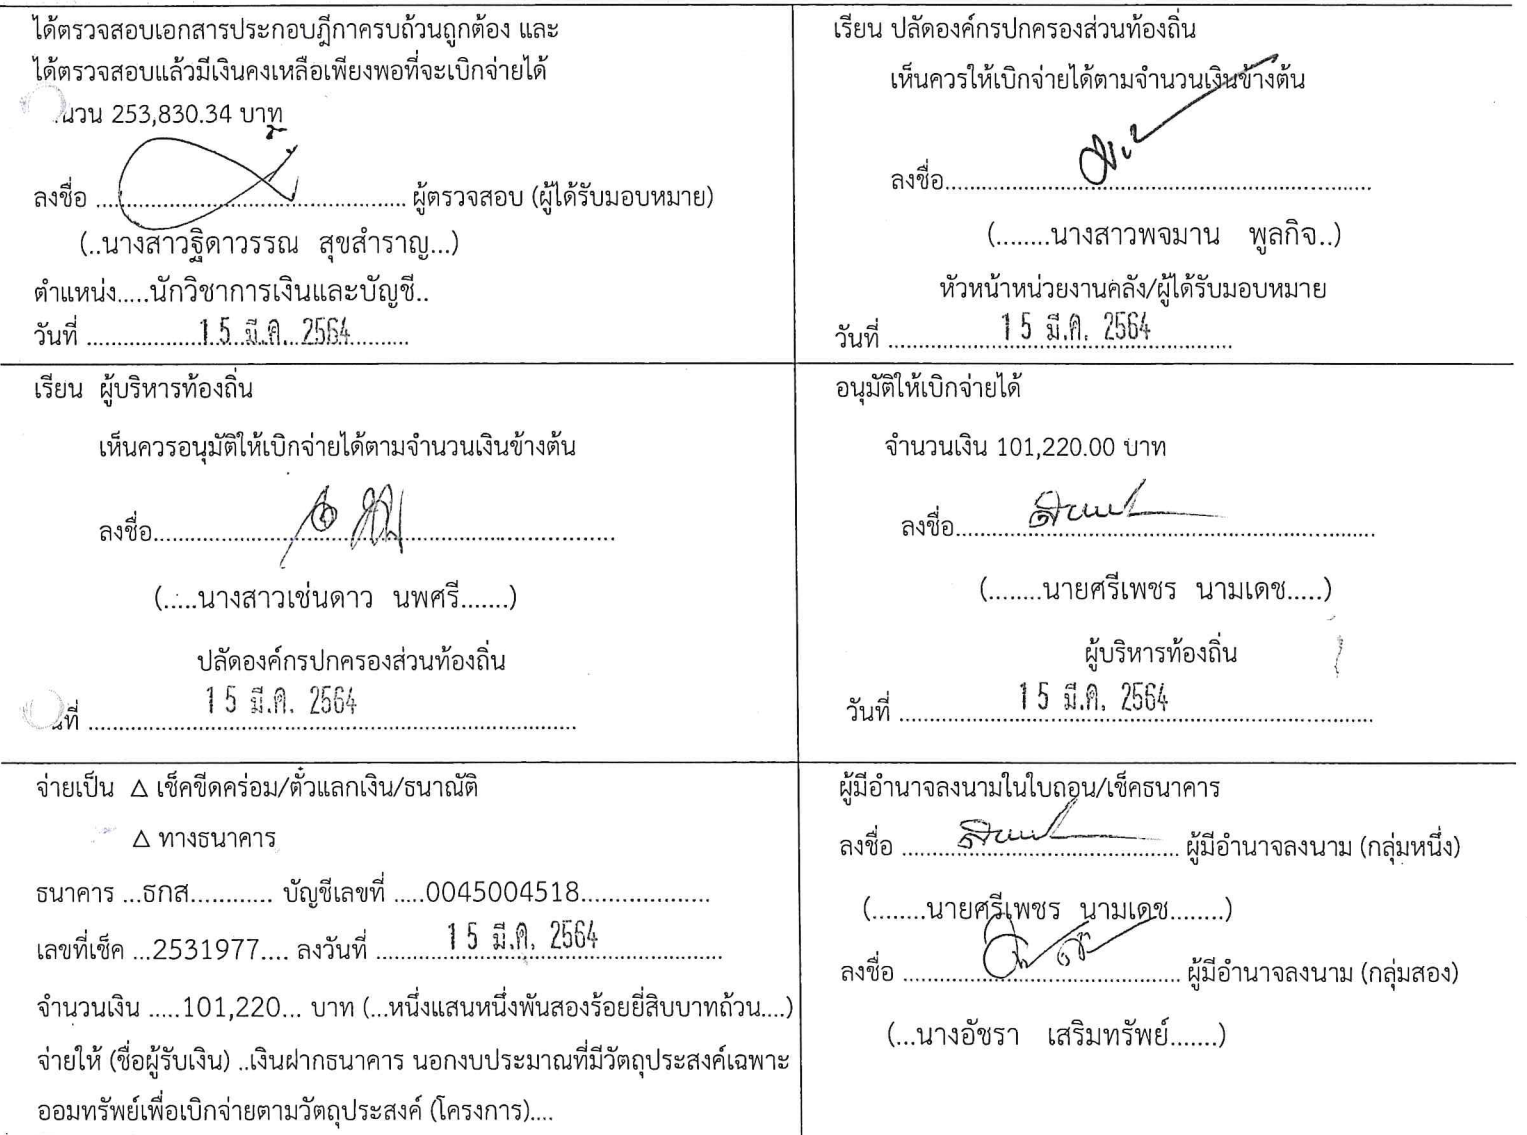 ได้ตรวจสอบเอกสารประกอบฎีกาครบถ้วนถูกต้อง และ
ได้ตรวจสอบแล้วมีเงินคงเหลือเพียงพอที่จะเบิกจ่ายได้
นวน 253,830.34 บาท
ลงชื่อ ............................................... ผู้ตรวจสอบ (ผู้ได้รับมอบหมาย)
(..นางสาวฐิดาวรรณ สุขสำราญ...)
ตำแหน่ง.....นักวิชาการเงินและบัญชี..
วันที่ ..................15 มี.ค. 2564..........
เรียน ปลัดองค์กรปกครองส่วนท้องถิ่น
เห็นควรให้เบิกจ่ายได้ตามจำนวนเงินข้างต้น
ลงชื่อ.................................................................
(........นางสาวพจมาน พูลกิจ..)
หัวหน้าหน่วยงานคลัง/ผู้ได้รับมอบหมาย
วันที่ 15 มี.ค. 2564
เรียน ผู้บริหารท้องถิ่น
เห็นควรอนุมัติให้เบิกจ่ายได้ตามจำนวนเงินข้างต้น
ลงชื่อ......................................................................
(.....นางสาวเช่นดาว นพศรี.......)
ปลัดองค์กรปกครองส่วนท้องถิ่น
นที่ 15 มี.ค. 2564
อนุมัติให้เบิกจ่ายได้
จำนวนเงิน 101,220.00 บาท
ลงชื่อ................................................................
(........นายศรีเพชร นามเดช.....)
ผู้บริหารท้องถิ่น
วันที่ 15 มี.ค. 2564
จ่ายเป็น △ เช็คขีดคร่อม/ตั๋วแลกเงิน/ธนาณัติ
△ ทางธนาคาร
ธนาคาร ...ธกส............ บัญชีเลขที่ .....0045004518...................
เลขที่เช็ค ...2531977.... ลงวันที่ 15 มี.ค. 2564
จำนวนเงิน .....101,220... บาท (...หนึ่งแสนหนึ่งพันสองร้อยยี่สิบบาทถ้วน....)
จ่ายให้ (ชื่อผู้รับเงิน) ..เงินฝากธนาคาร นอกงบประมาณที่มีวัตถุประสงค์เฉพาะ
ออมทรัพย์เพื่อเบิกจ่ายตามวัตถุประสงค์ (โครงการ)....
ผู้มีอำนาจลงนามในใบถอน/เช็คธนาคาร
ลงชื่อ .......................................... ผู้มีอำนาจลงนาม (กลุ่มหนึ่ง)
(........นายศรีเพชร นามเดช........)
ลงชื่อ .......................................... ผู้มีอำนาจลงนาม (กลุ่มสอง)
(...นางอัชรา เสริมทรัพย์.......)